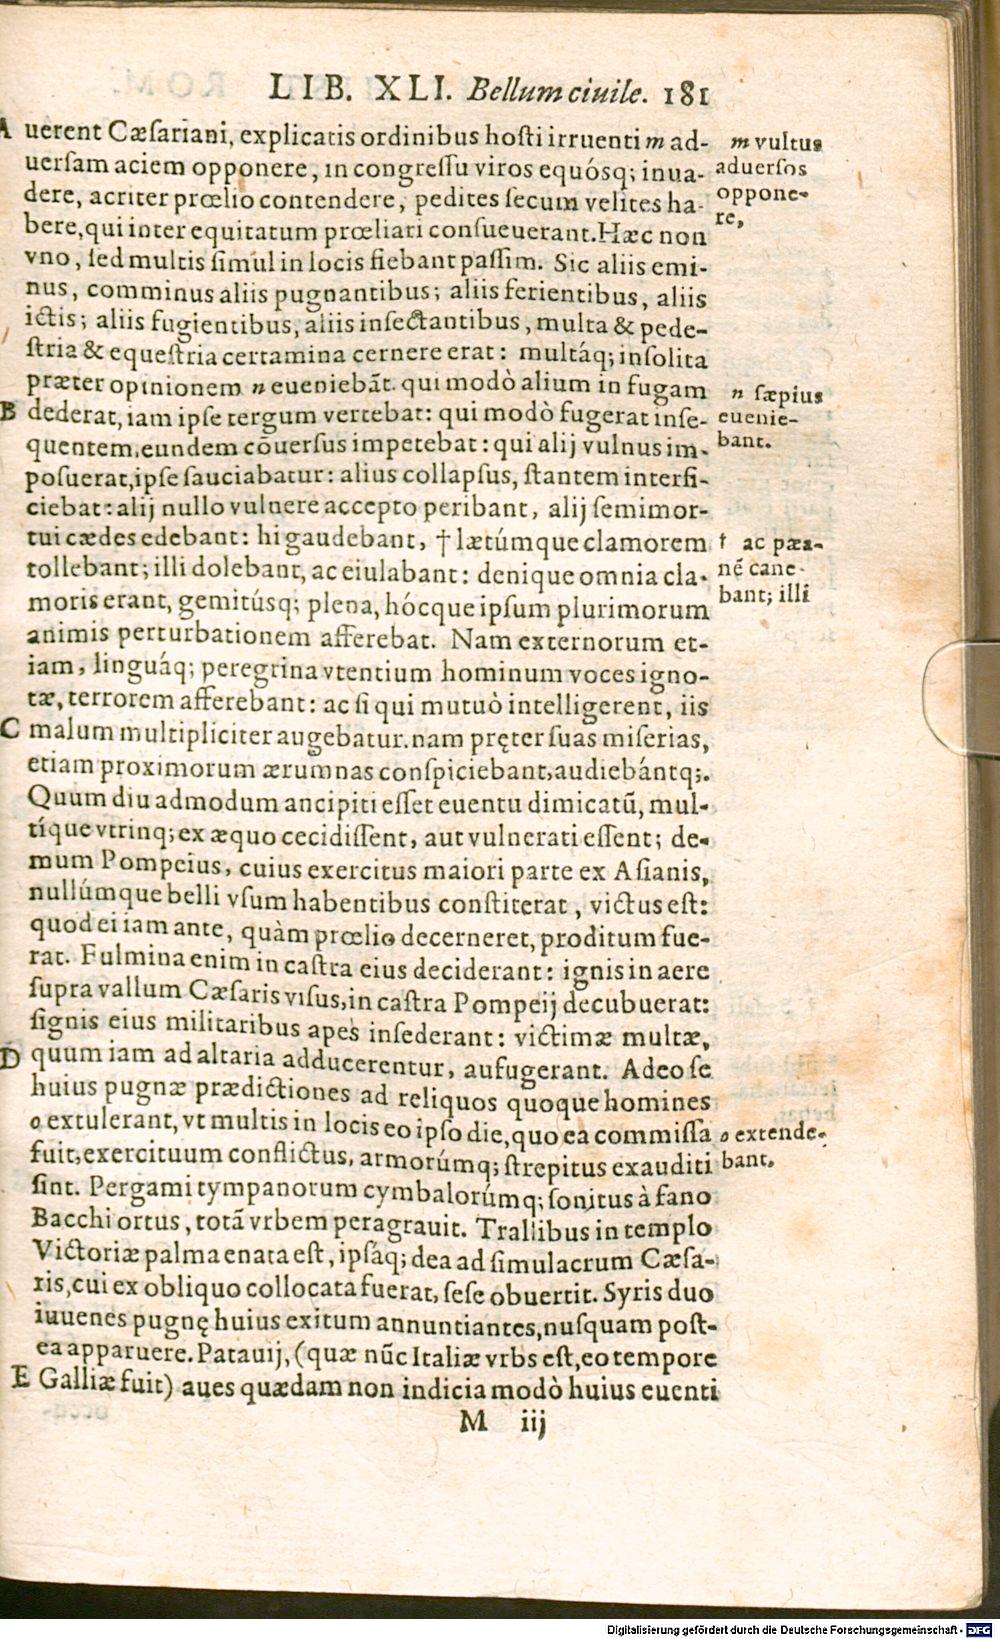 LIB. XLI. Bellum ciuile. 181
A uerent Cæſariani, explicatis ordinibus hoſti irruenti m ad-
uerſam aciem opponere, in congreſſu viros equósq; inua-
dere, acriter prœlio contendere, pedites ſecum velites ha-
bere, qui inter equitatum prœliari conſueuerant. Hæc non
vno, ſed multis ſimul in locis fiebant paſſim. Sic aliis emi-
nus, comminus aliis pugnantibus; aliis ferientibus, aliis
ictis; aliis fugientibus, aliis inſectantibus, multa & pede-
ſtria & equeſtria certamina cernere erat: multáq; inſolita
præter opinionem n eueniebãt. qui modò alium in fugam
B dederat, iam ipſe tergum vertebat: qui modò fugerat inſe-
quentem, eundem cõuerſus impetebat: qui alij vulnus im-
poſuerat, ipſe ſauciabatur: alius collapſus, ſtantem interfi-
ciebat: alij nullo vulnere accepto peribant, alij ſemimor-
tui cædes edebant: hi gaudebant, † lætúmque clamorem
tollebant; illi dolebant, ac eiulabant: denique omnia cla-
moris erant, gemitúsq; plena, hócque ipſum plurimorum
animis perturbationem afferebat. Nam externorum et-
iam, linguáq; peregrina vtentium hominum voces igno-
tæ, terrorem afferebant: ac ſi qui mutuò intelligerent, iis
C malum multipliciter augebatur. nam pręter ſuas miſerias,
etiam proximorum ærumnas conſpiciebant, audiebántq;.
Quum diu admodum ancipiti eſſet euentu dimicatũ, mul-
tíque vtrinq; ex æquo cecidiſſent, aut vulnerati eſſent; de-
mum Pompeius, cuius exercitus maiori parte ex Aſianis,
nullúmque belli vſum habentibus conſtiterat, victus eſt:
quod ei iam ante, quàm prœlio decerneret, proditum fue-
rat. Fulmina enim in caſtra eius deciderant: ignis in aere
ſupra vallum Cæſaris viſus, in caſtra Pompeij decubuerat:
ſignis eius militaribus apes inſederant: victimæ multæ,
D quum iam ad altaria adducerentur, aufugerant. Adeo ſe
huius pugnæ prædictiones ad reliquos quoque homines
o extulerant, vt multis in locis eo ipſo die, quo ea commiſſa
fuit, exercituum conflictus, armorúmq; ſtrepitus exauditi
ſint. Pergami tympanorum cymbalorúmq; ſonitus à fano
Bacchi ortus, totã vrbem peragrauit. Trallibus in templo
Victoriæ palma enata eſt, ipſáq; dea ad ſimulacrum Cæſa-
ris, cui ex obliquo collocata fuerat, ſeſe obuertit. Syris duo
iuuenes pugnę huius exitum annuntiantes, nuſquam poſt-
ea apparuere. Patauij, (quæ nũc Italiæ vrbs eſt, eo tempore
E Galliæ fuit) aues quædam non indicia modò huius euenti
M iij
m vultus
aduerſos
oppone-
re,
n ſæpius
euenie-
bant.
† ac pæa-
nẽ cane-
bant; illi
o extende-
bant.
Digitalisierung gefördert durch die Deutsche Forschungsgemeinschaft - DFG